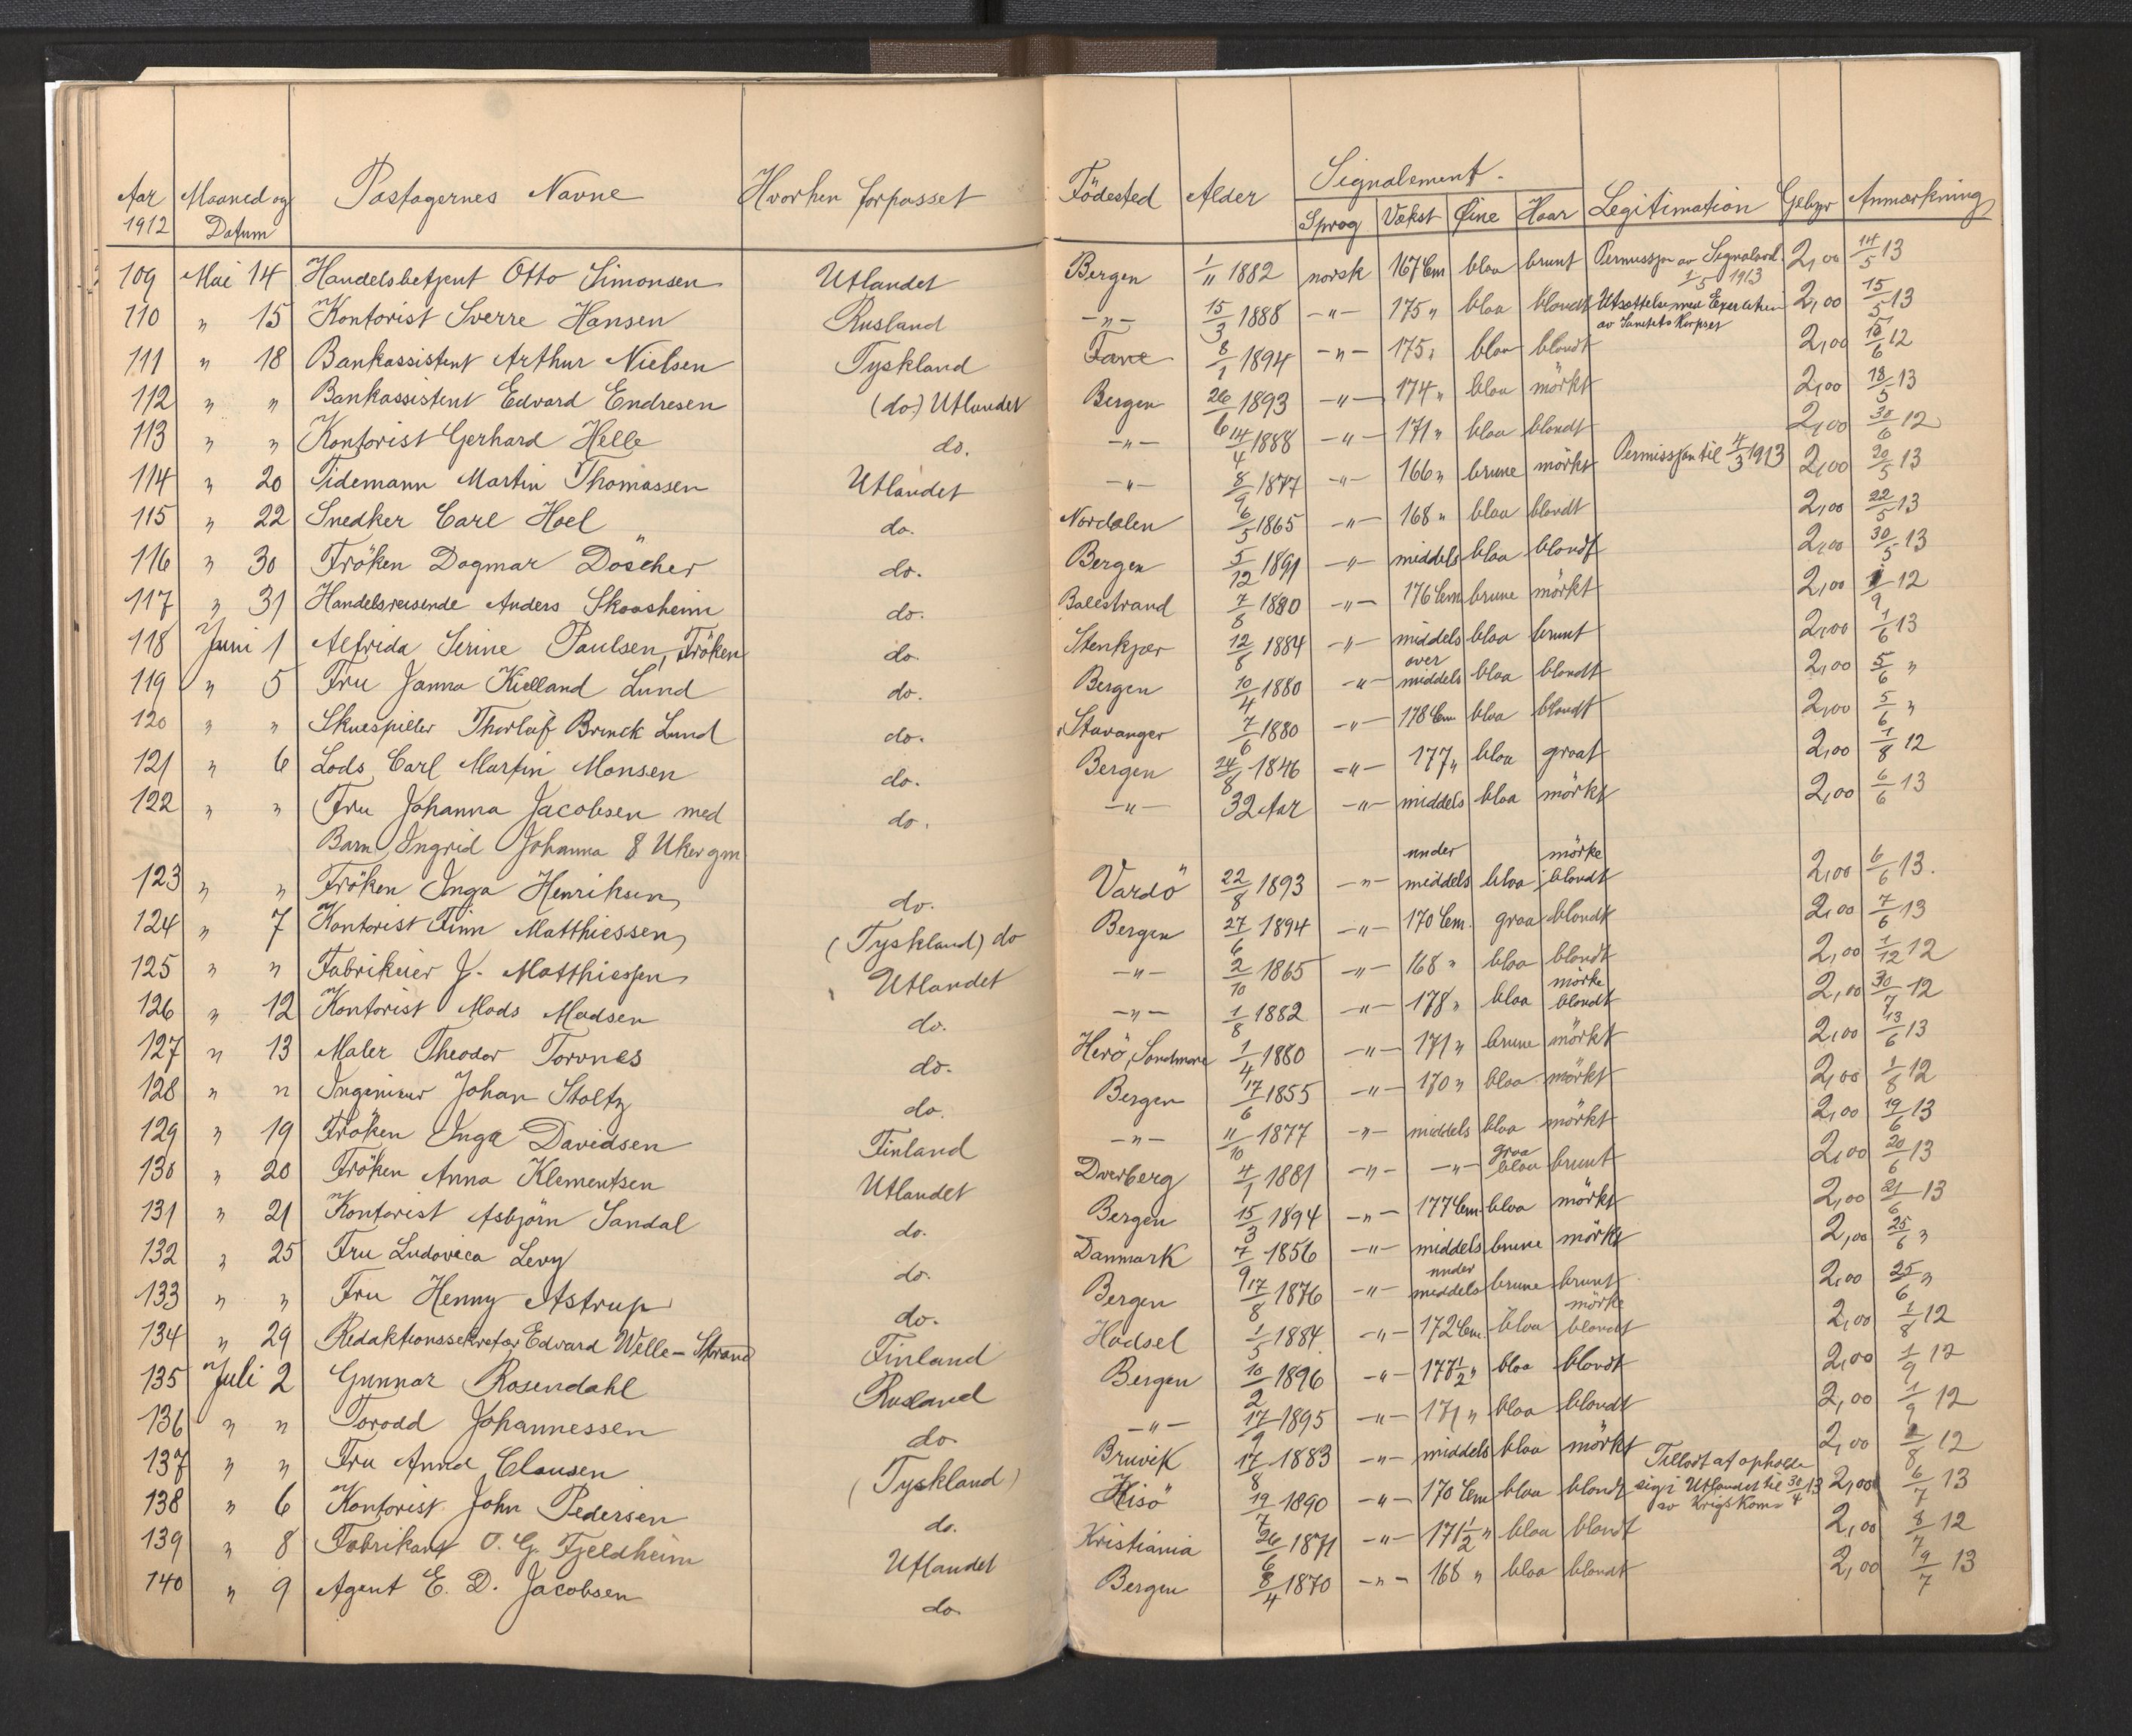 Aar Maaned og Pastagernes Navne Hvorhen forpasset Födested Alder Signalement. Legitimation Gebyr Anmærkning
1912 Datum Sprog Vækst Øine Haar
109 Mai 14 Handelsbetjent Otto Simonsen Utlandet Bergen 1/11 1882 norsk 167 Cm blaa brunt Permissjon av 1/5 1913 2,00 14/5 13
110 " 15 Kontorist Sverre Hansen Rusland -"- 15/3 1888 -"- 175 " blaa blondt Utsættelse med av Sanitets Korpset 2,00 15/5 13
111 " 18 Bankassistent Arthur Nielsen Tyskland Fane 8/1 1894 -"- 175 " blaa blondt 2,00 15/6 12
112 " " Bankassistent Edvard Endresen (do) Utlandet Bergen 26/6 1893 -"- 174 " blaa mörkt 2,00 18/5 13
113 " " Kontorist Gerhard Helle do. -"- 14/4 1888 -"- 171 " blaa blondt 2,00 30/6 12
114 " 20 Tidemann Martin Thomassen Utlandet -"- 8/9 1877 -"- 166 " brune mörkt Permissjon til 4/3 1913 2,00 20/5 13
115 " 22 Snedker Carl Hoel do. Nordalen 6/5 1865 -"- 168 " blaa blondt 2,00 22/5 13
116 " 30 Fröken Dagmar Döscher do. Bergen 5/12 1891 -"- middels blaa blondt 2,00 30/5 13
117 " 31 Handelsreisende Anders Skaasheim do. Balestrand 7/8 1880 -"- 176 Cm brune mörkt 2,00 1/9 12
118 Juni 1 Alfrida Serine Paulsen, Fröken do. Stenkjær 12/8 1884 -"- middels blaa brunt 2,00 1/6 13
119 " 5 Fru Janna Kielland Lund do. Bergen 10/4 1880 -"- over middels blaa blondt 2,00 5/6 "
120 " " Skuespiller Thorleif Brinck Lund do. Stavanger 7/6 1880 -"- 178 Cm blaa blondt 2,00 5/6 "
121 " 6 Lods Carl Martin Monsen do. Bergen 24/8 1846 -"- 177 " blaa graat 2,00 1/8 12
122 " " Fru Johanna Jacobsen med do. -"- 32 Aar -"- middels blaa mörkt 2,00 6/6 13
Barn Ingrid Johanna 8 Uker gm
123 " " Fröken Inga Henriksen do. Vardö 22/8 1893 -"- under middels blaa mörke blondt 2,00 6/6 13.
124 " 7 Kontorist Finn Matthiessen (Tyskland) do Bergen 27/6 1894 -"- 170 Cm. graa blondt 2,00 7/6 13
125 " " Fabrikeier J. Matthiessen Utlandet -"- 2/10 1865 -"- 168 " blaa blondt 2,00 1/12 12
126 " 12 Kontorist Mads Madsen do. -"- 1/8 1882 -"- 178 " blaa mörke blondt 2,00 30/7 12
127 " 13 Maler Theodor Torvnes do. Herö, Söndmöre 1/4 1880 -"- 171 " brune mörkt 2,00 13/6 13
128 " " Ingenieur Johan Stoltz do. Bergen 17/6 1855 -"- 170 " blaa mörkt 2,00 1/8 12
129 " 19 Fröken Inga Davidsen Finland -"- 11/10 1877 -"- middels blaa mörkt 2,00 19/6 13
130 " 20 Fröken Anna Klementsen Utlandet Dverberg 4/1 1881 -"- -"- graa blaa brunt 2,00 20/6 13
131 " 21 Kontorist Asbjörn Sandal do. Bergen 15/3 1894 -"- 177 Cm blaa mörkt 2,00 21/6 13
132 " 25 Fru Ludovica Levy do. Danmark 7/9 1856 -"- middels brune mörkt 2,00 25/6 "
133 " " Fru Henny Astrup do. Bergen 17/8 1876 -"- under middels brune brunt 2,00 25/6 "
134 " 29 Redaktionssekretær Edvard Welle-Strand Finland Hadsel 1/5 1884 -"- 172 Cm. blaa mörke blondt 2,00 1/8 12
135 Juli 2 Gunnar Rosendahl Rusland Bergen 10/2 1896 -"- 177 1/2 " blaa blondt 2,00 1/9 12
136 " " Torodd Johannessen do. -"- 17/9 1895 -"- 171 " blaa blondt 2,00 1/9 12
137 " " Fru Anna Clausen (Tyskland) Bruvik 17/8 1883 -"- middels blaa mörkt 2,00 1/8 12
138 " 6 Kontorist John Pedersen do. Hisö 19/7 1890 -"- 170 Cm blaa blondt Tillatt at opholde sig i Utlandet til 30/4 13 av Krigs Kom. 2,00 6/7 13
139 " 8 Fabrikant O. G. Fjeldheim Utlandet Kristiania 26/6 1871 -"- 171 1/2 " blaa blondt 2,00 8/7 12
140 " 9 Agent E. D. Jacobsen do. Bergen 8/4 1870 -"- 168 " blaa blondt 2,00 9/7 13